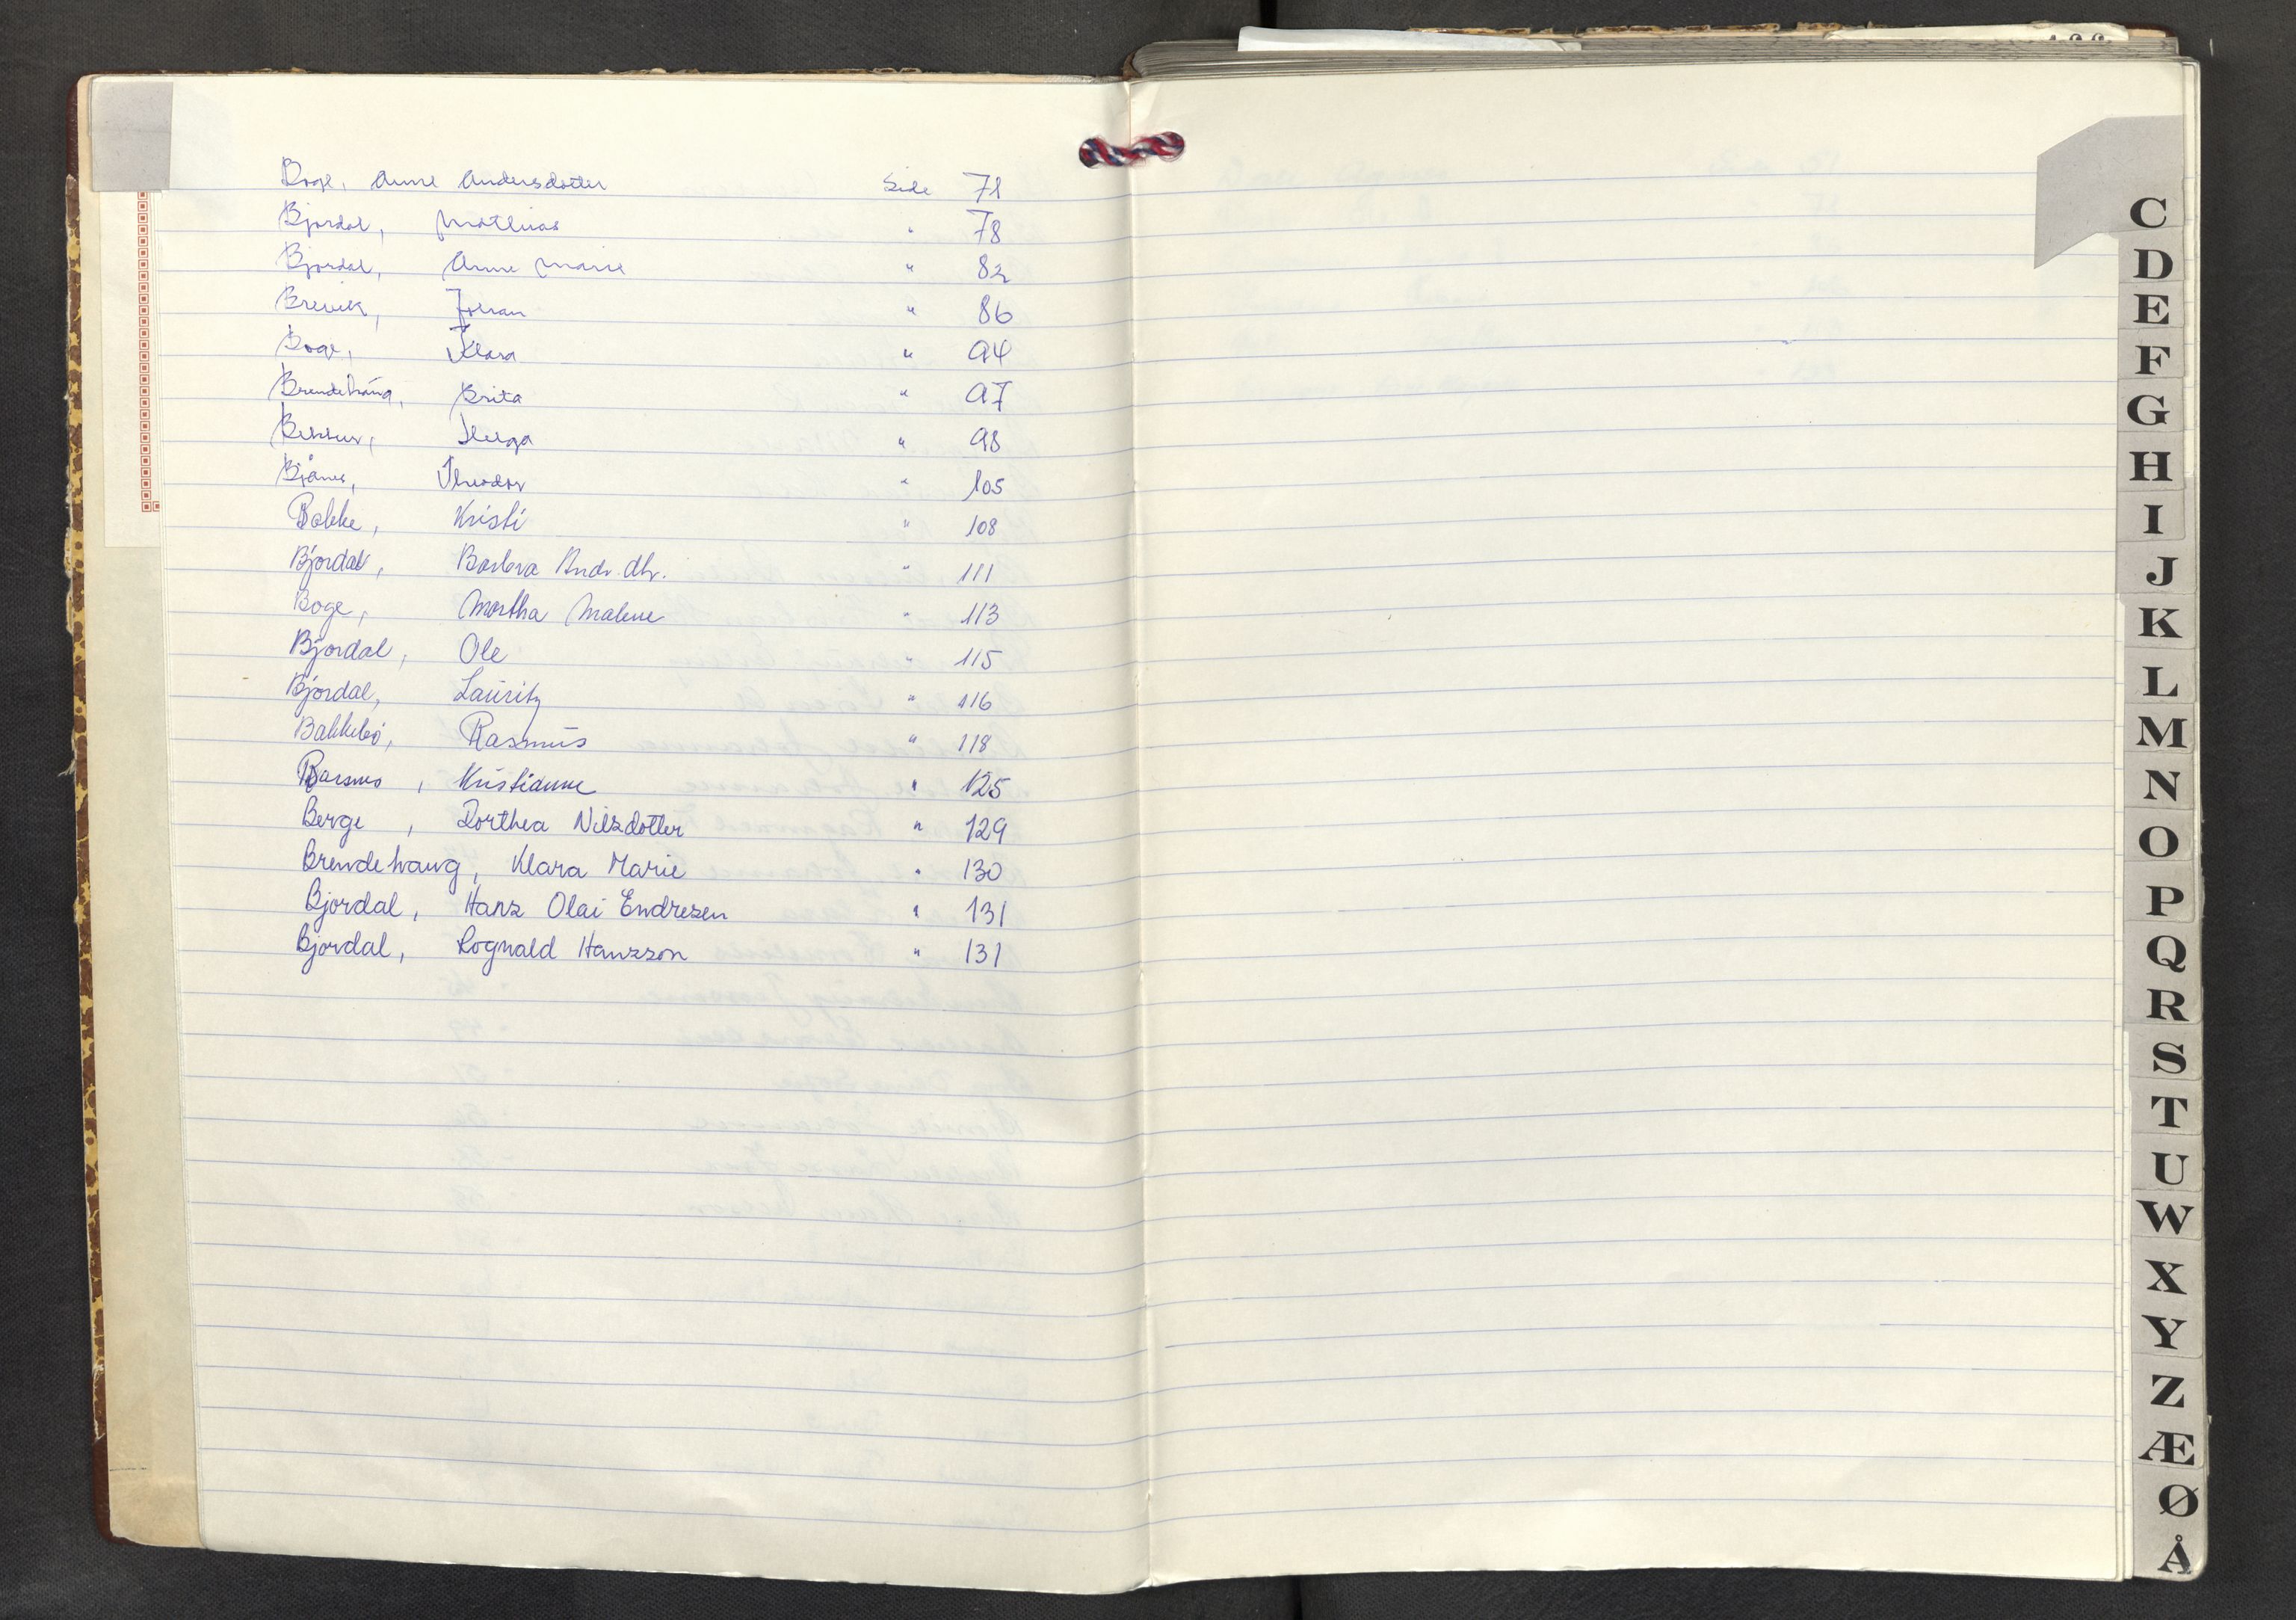 Boge, Anne Andersdotter Side 71
Bjordal, Mathias " 78
Bjordal, Anne Marie " 82
Brevik, Johan " 86
Boge, Klara " 94
Brendehaug, Brita " 97
Helga " 98
Theodor " 105
Bakke, Kristi " 108
Bjordal, Barbra Andr. dtr. " 111
Boge, Martha Malene " 113
Bjordal, Ole " 115
Bjordal, Lauritz " 116
Bakkebø, Rasmus " 118
Kristianne " 125
Berge, Dorthea Nilsdotter " 129
Brendehaug, Klara Marie " 130
Bjordal, Hans Olai Endresen " 131
Bjordal, Rognald Hansson " 131
C
D
E
F
G
H
I
J
K
L
M
N
O
P
Q
R
S
T
U
W
X
Y
Z
Æ
Ø
Å